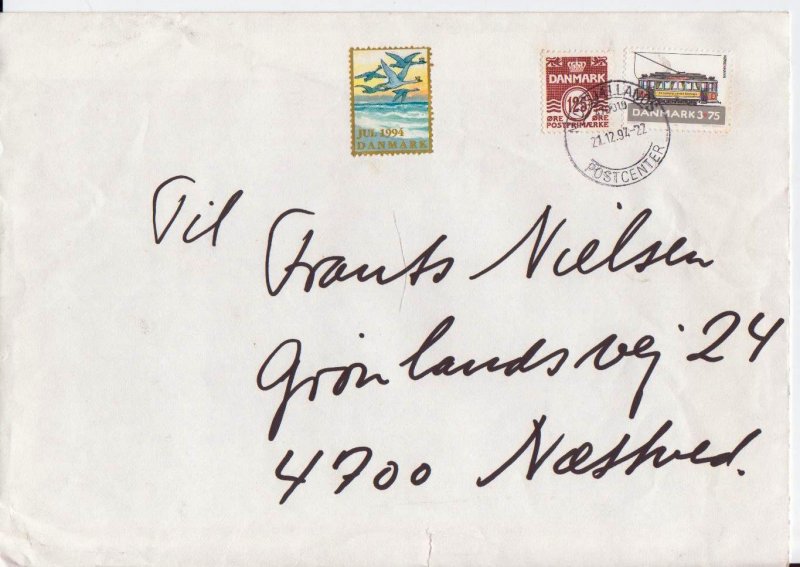 JUL 1994
DANMARK
DANMARK
125
ØRE ØRE
POSTFRIMÆRKE
DANMARK 3 75
21.12.94-22
POSTCENTER
Til
Frants Nielsen
Grønlandsvej 24
4700 Næstved.